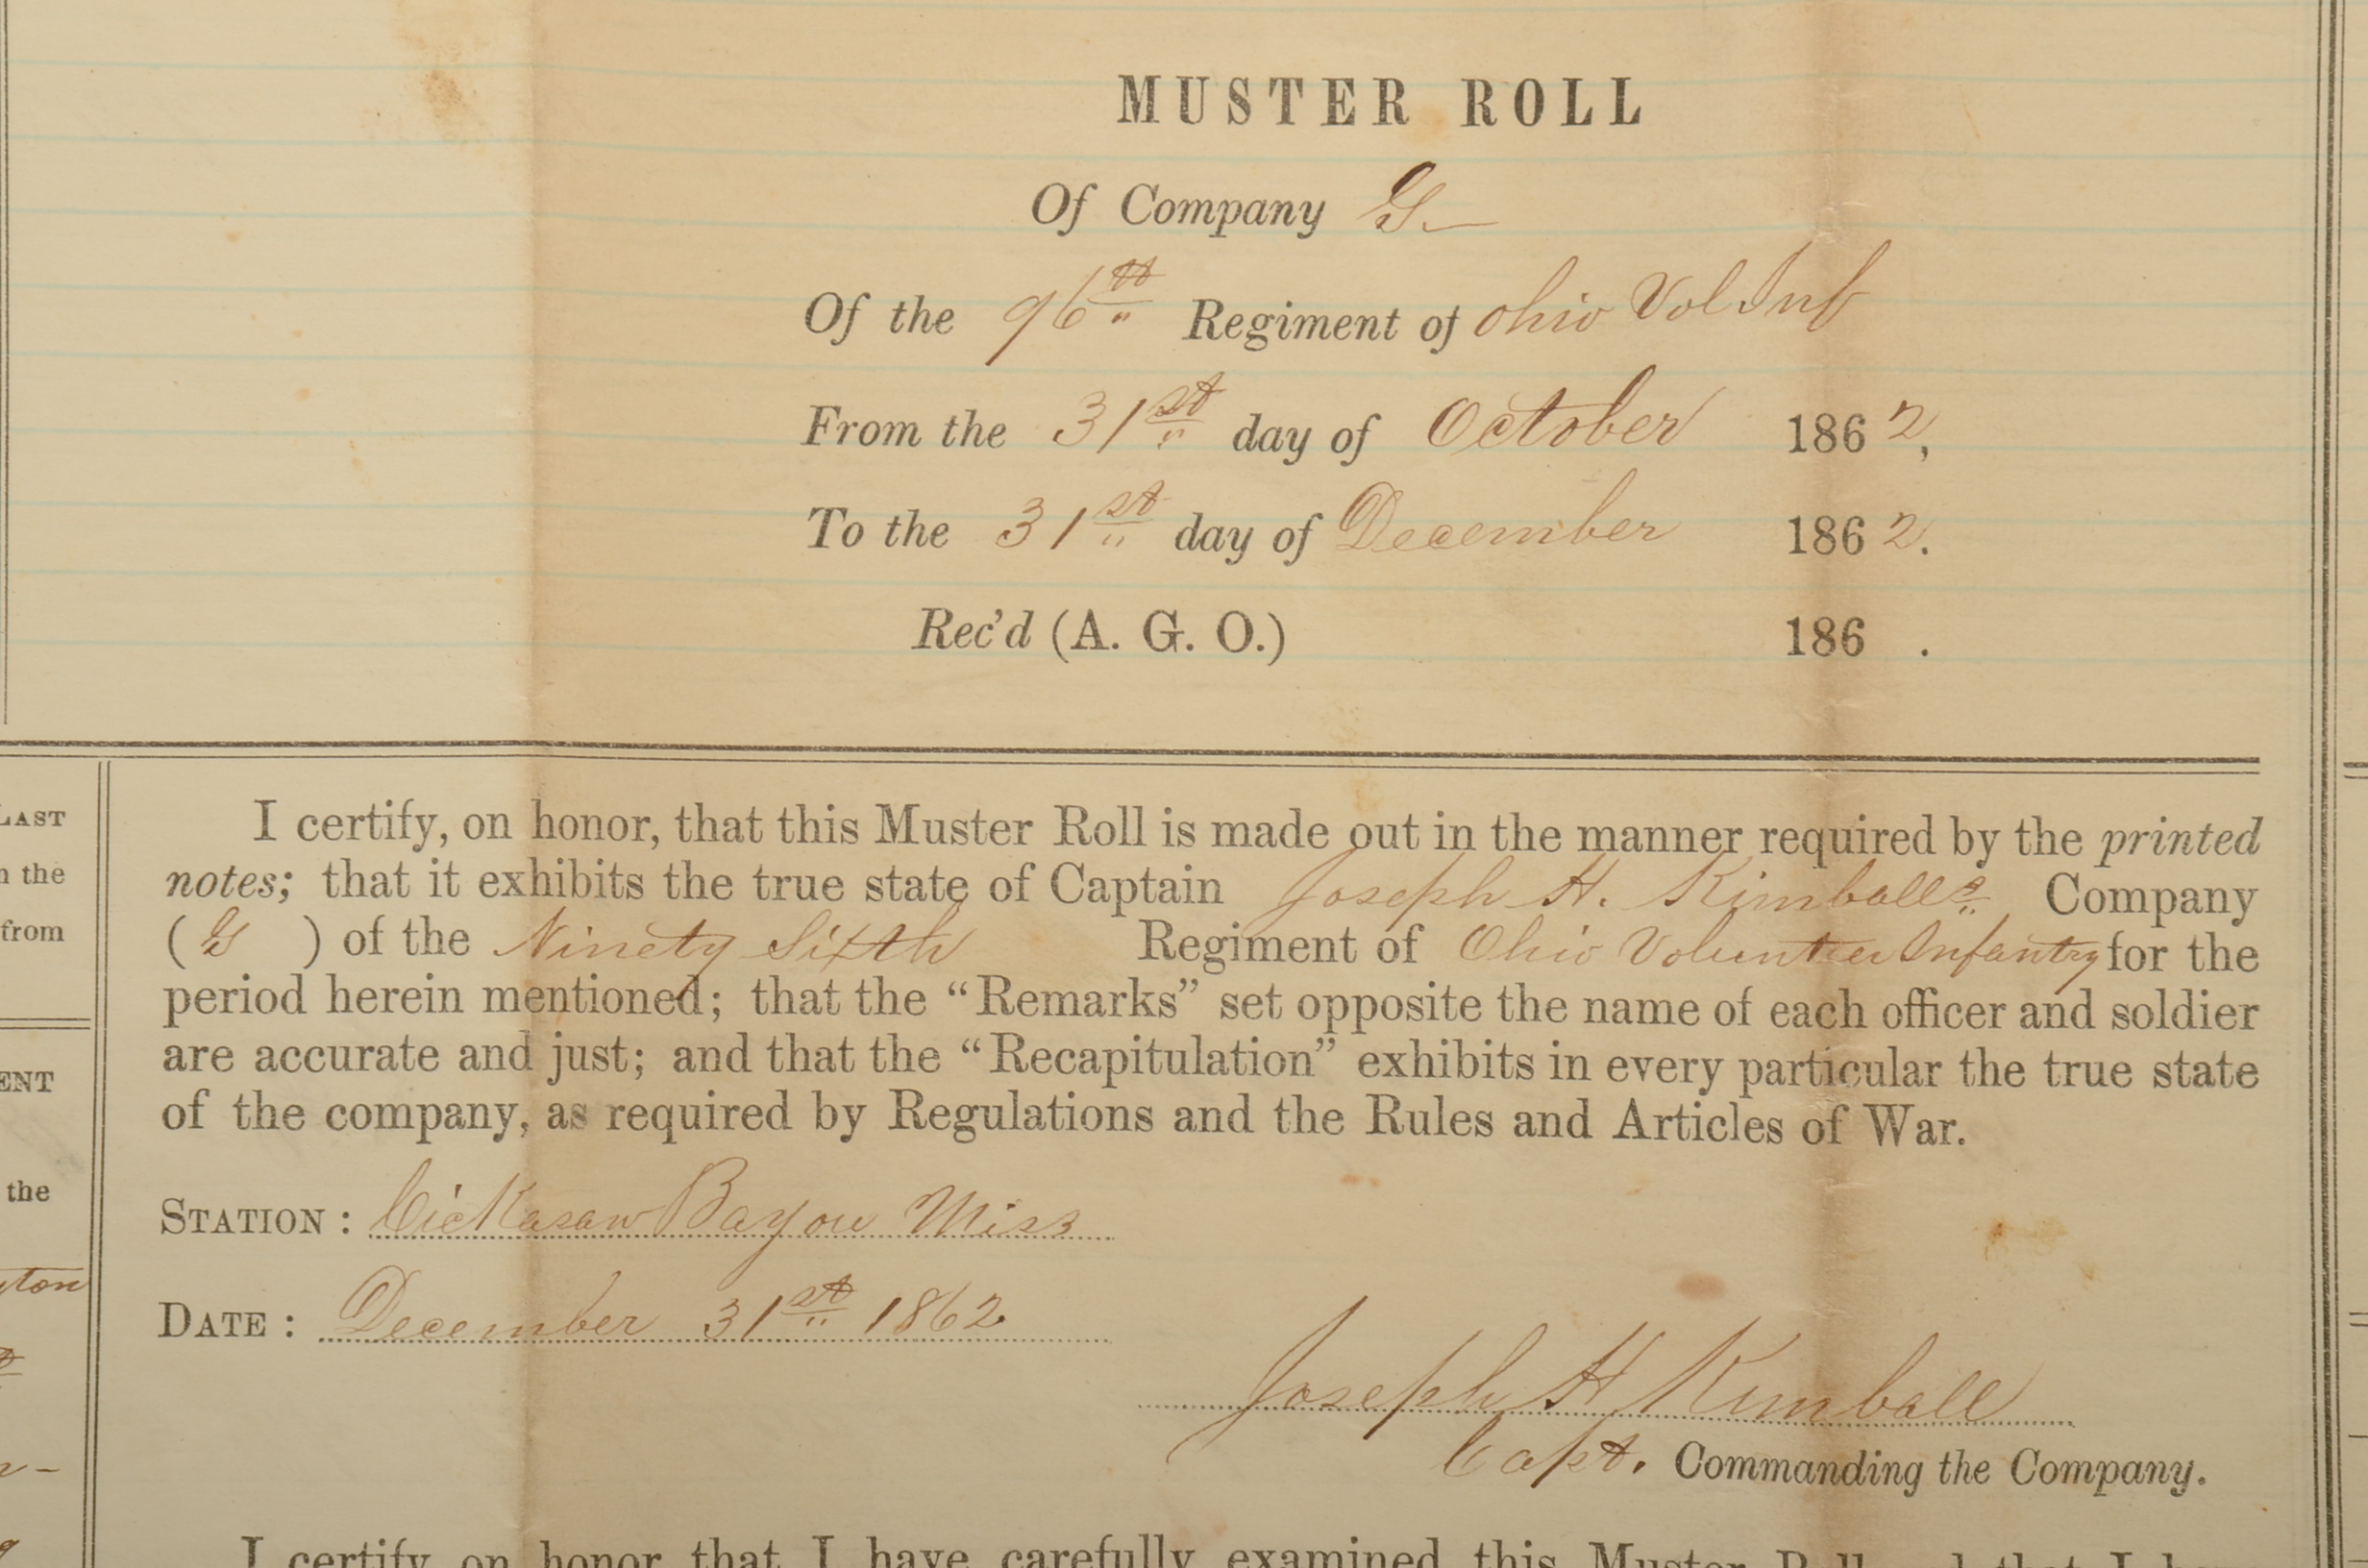 MUSTER ROLL
Of Company G
Of the 96th Regiment of Ohio Vol Inf
From the 31st day of October 1862,
To the 31st day of December 1862.
Rec'd (A. G. O.) 186 .
LAST
the
from
I certify, on honor, that this Muster Roll is made out in the manner required by the printed
notes; that it exhibits the true state of Captain Joseph H. Kimball's Company
(G) of the Ninety Sixth Regiment of Ohio Volunteer Infantry for the
period herein mentioned; that the “Remarks” set opposite the name of each officer and soldier
are accurate and just; and that the “Recapitulation” exhibits in every particular the true state
of the company, as required by Regulations and the Rules and Articles of War.
ENT
the
STATION: Cickasaw Bayou Miss
DATE: December 31st 1862
Joseph H Kimball
Capt. Commanding the Company.
I certify on honor that I have carefully examined this Muster Roll